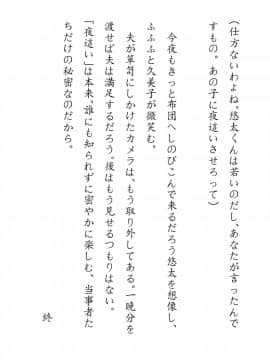 (仕方ないわよね。悠太くんは若いのだし、あなたが言ったんで
すもの。あの子に夜這いさせろって)
今夜もきっと布団へしのびこんで来るだろう悠太を想像し、
ふふふと久美子が微笑む。
夫が箪笥にしかけたカメラは、もう取り外してある。一晩分を
渡せば夫は満足するだろう。後はもう見せるつもりはない。
「夜這い」は本来、誰にも知られずに密やかに楽しむ、当事者た
ちだけの秘密なのだから。
終